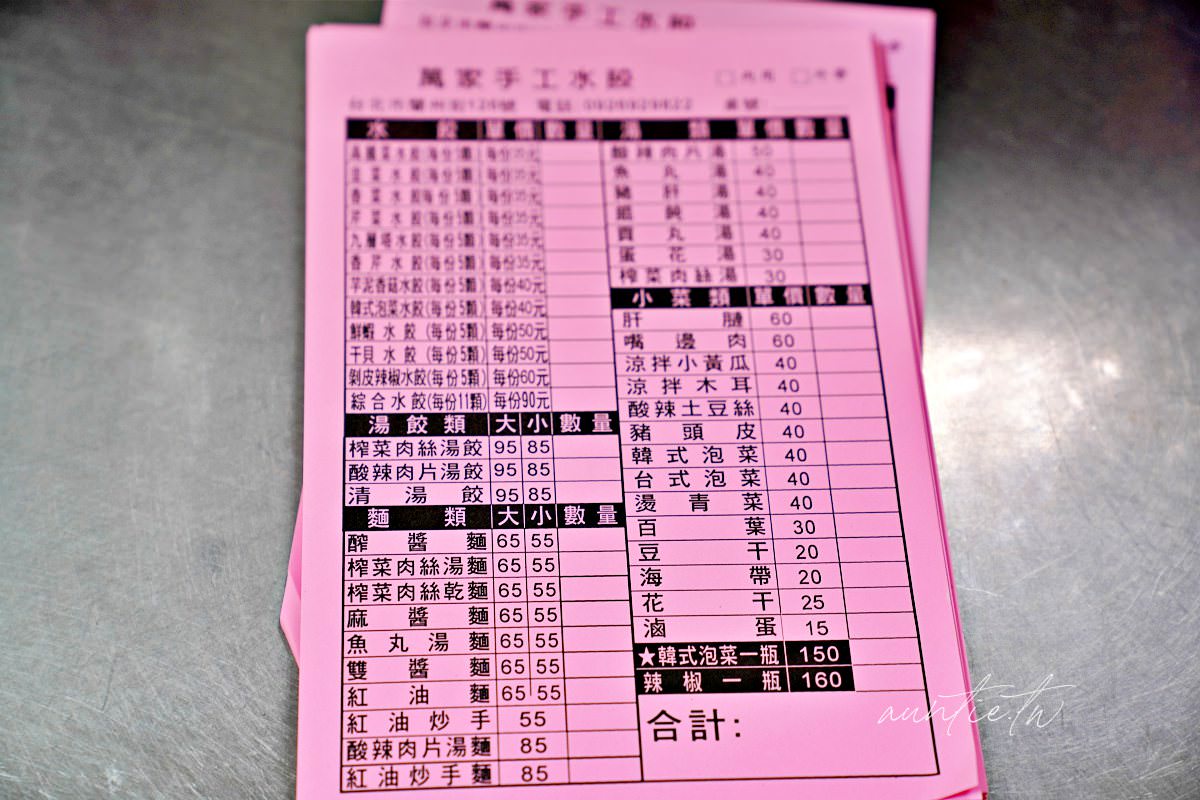 萬家手工水餃
萬家手工水餃 □內用 □外帶
台北市蘭州街126號 電話:0926929622 桌號:
水餃 單價 數量
高麗菜水餃(每份5顆) 每份35元
韭菜水餃(每份5顆) 每份35元
香菜水餃(每份5顆) 每份35元
芹菜水餃(每份5顆) 每份35元
九層塔水餃(每份5顆) 每份35元
香芹水餃(每份5顆) 每份35元
芋泥香菇水餃(每份5顆) 每份40元
韓式泡菜水餃(每份5顆) 每份40元
鮮蝦水餃(每份5顆) 每份50元
干貝水餃(每份5顆) 每份50元
剝皮辣椒水餃(每份5顆) 每份60元
綜合水餃(每份11顆) 每份90元
湯餃類 大 小 數量
榨菜肉絲湯餃 95 85
酸辣肉片湯餃 95 85
清湯餃 95 85
麵類 大 小 數量
醡醬麵 65 55
榨菜肉絲湯麵 65 55
榨菜肉絲乾麵 65 55
麻醬麵 65 55
魚丸湯麵 65 55
雙醬麵 65 55
紅油麵 65 55
紅油炒手 55
酸辣肉片湯麵 85
紅油炒手麵 85
湯類 單價 數量
酸辣肉片湯 50
魚丸湯 40
豬肝湯 40
餛飩湯 40
貢丸湯 40
蛋花湯 30
榨菜肉絲湯 30
小菜類 單價 數量
肝腱 60
嘴邊肉 60
涼拌小黃瓜 40
涼拌木耳 40
酸辣土豆絲 40
豬頭皮 40
韓式泡菜 40
台式泡菜 40
燙青菜 40
百葉 30
豆干 20
海帶 20
花干 25
滷蛋 15
★韓式泡菜一瓶 150
辣椒一瓶 160
合計:
auntie.tw